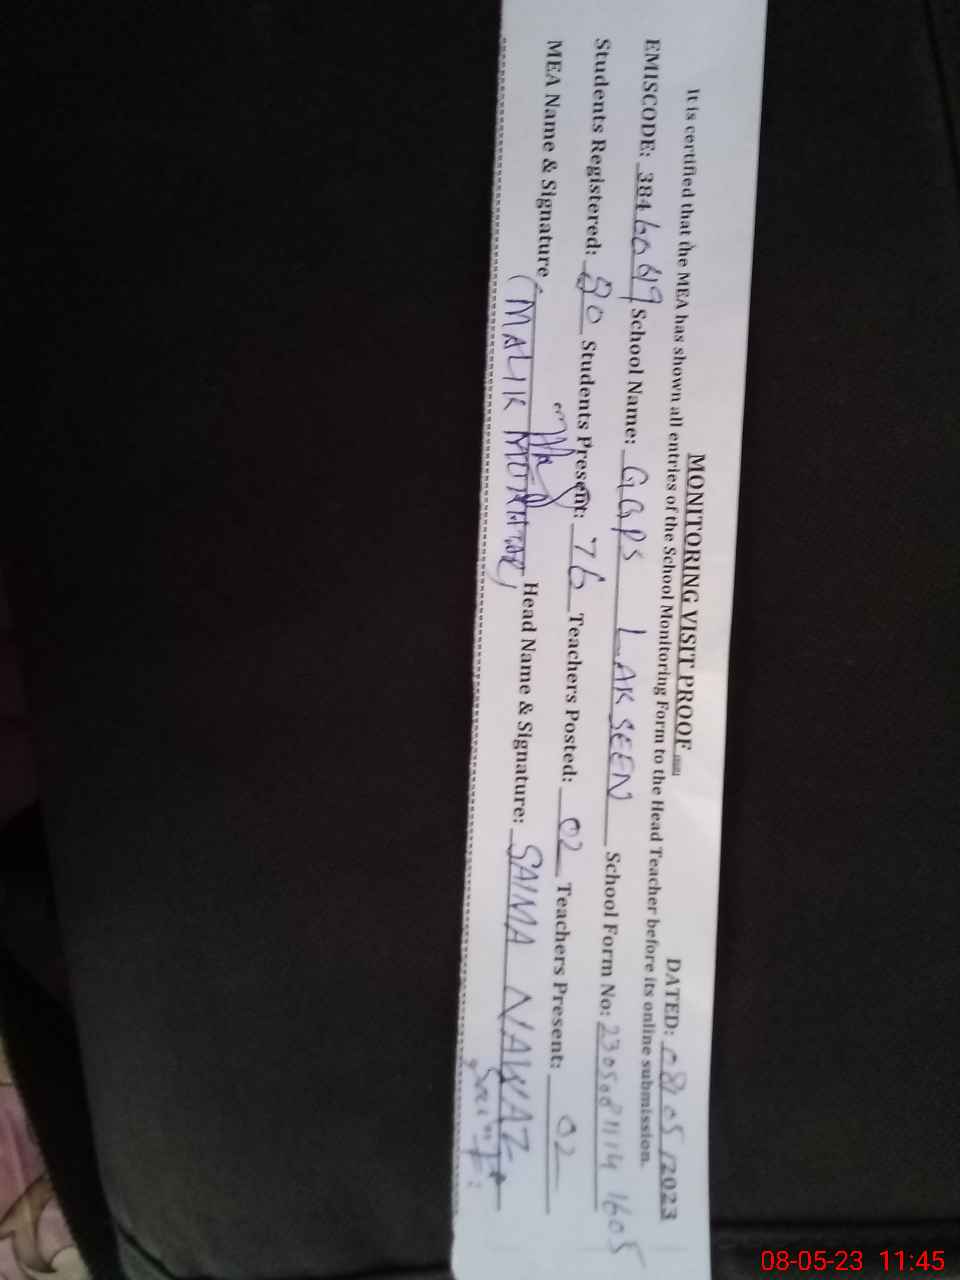 MONITORING VISIT PROOF
DATED: 08/05/2023
It is certified that the MEA has shown all entries of the School Monitoring Form to the Head Teacher before its online submission.
EMISCODE: 38460619 School Name: GGPS LAKSEEN School Form No: 2305081114 1605
Students Registered: 80 Students Present: 76 Teachers Posted: 02 Teachers Present: 02
MEA Name & Signature (MALIK MUKHTAR) Head Name & Signature: SAIMA NAWAZ
08-05-23 11:45